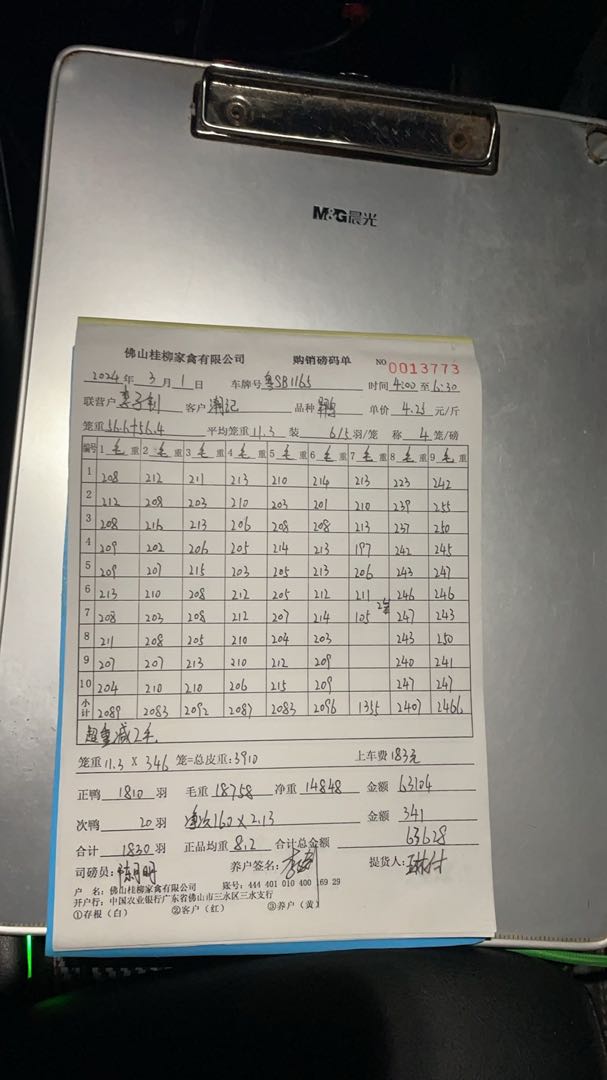 M&G晨光
佛山桂柳家禽有限公司 购销磅码单 NO 0013773
2024年3月1日 车牌号 粤SB1165 时间 4:00 至 6:30
联营户 客户 潮记 品种 单价 4.25 元/斤
笼重 56.6+56.4 平均笼重 11.3 装 6/5 羽/笼 称 4 笼/磅
编号 1 毛 重 2 毛 重 3 毛 重 4 毛 重 5 毛 重 6 毛 重 7 毛 重 8 毛 重 9 毛 重
1 208 212 211 213 210 214 213 223 242
2 212 208 203 210 203 201 210 239 255
3 208 216 213 206 208 208 213 237 250
4 209 202 206 205 214 213 197 242 245
5 209 207 215 203 205 213 206 243 247
6 213 210 208 212 205 212 211 246 246
7 208 203 208 212 207 214 105 2笼 247 243
8 211 208 205 210 204 203 243 250
9 207 207 213 210 212 209 240 241
10 204 210 210 206 215 209 247 247
小计 2089 2083 2092 2087 2083 2096 1355 2407 2466
超重减2毛
笼重 11.3 X 346 笼=总皮重:3910 上车费 183元
正鸭 1810 羽 毛重 18758 净重 14848 金额 63104
次鸭 20 羽 160 x 2.13 金额 341
合计 1830 羽 正品均重 8.2 合计总金额 63628
司磅员: 养户签名: 提货人:
户 名: 佛山桂柳家禽有限公司 账号: 444 401 010 400 169 29
开户行: 中国农业银行广东省佛山市三水区三水支行
①存根(白) ②客户(红) ③养户(黄)